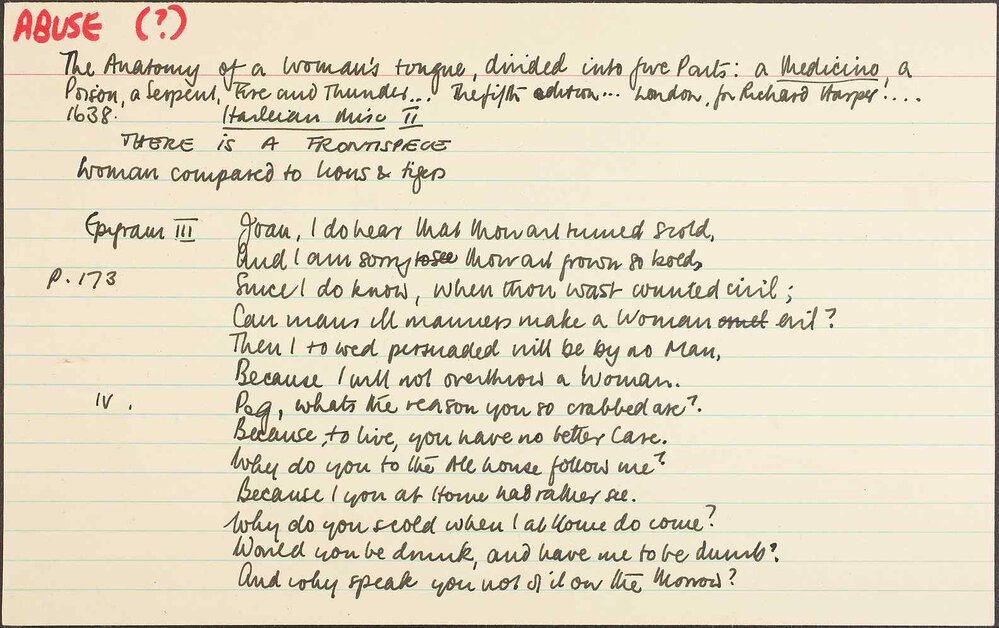 ABUSE (?)
The Anatomy of a Woman's tongue, divided into five Parts: a Medicine, a
Poison, a Serpent, Fire and Thunder... The fifth edition... London, for Richard Harper....
1638. Harleian Misc II
THERE IS A FRONTISPIECE
Woman compared to lions & tigers
Epigram III Joan, I do hear that thou art turned scold,
And I am sorry to see thou art grown so bold,
p. 173 Since I do know, when thou wast counted civil;
Can mans ill manners make a Woman evil?
Then I to wed persuaded will be by no Man,
Because I will not overthrow a Woman.
IV. Peg, whats the reason you so crabbed are?
Because, to live, you have no better Care.
Why do you to the Ale house follow me?
Because I you at Home had rather see.
Why do you scold when I at Home do come?
Would you be drunk, and have me to be dumb?
And why speak you not of it on the Morrow?